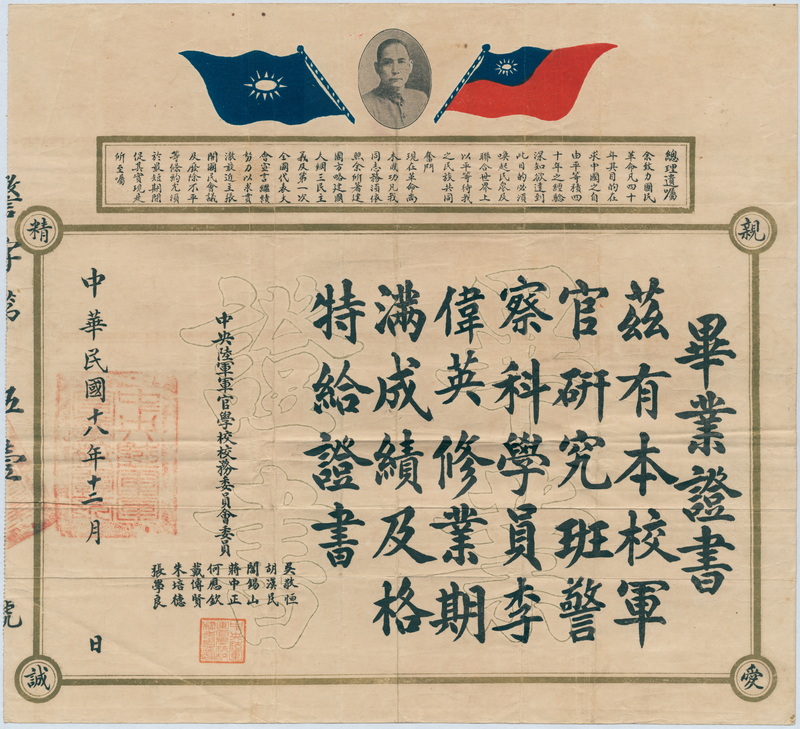 總理遺囑
余致力國民
革命凡四十
年其目的在
求中國之自
由平等積四
十年之經驗
深知欲達到
此目的必須
喚起民眾及
聯合世界上
以平等待我
之民族共同
奮鬥
現在革命尚
未成功凡我
同志務須依
照余所著建
國方略建國
大綱三民主
義及第一次
全國代表大
會宣言繼續
努力以求貫
澈最近主張
開國民會議
及廢除不平
等條約尤須
於最短期間
促其實現是
所至囑
親
愛
精
誠
畢業證書
茲有本校軍
官研究班警
察科學員李
偉英修業期
滿成績及格
特給證書
中央陸軍軍官學校校務委員會委員
吳敬恒
胡漢民
閻錫山
蔣中正
何應欽
戴傳賢
朱培德
張學良
中華民國十八年十二月 日
字第 伍壹 號